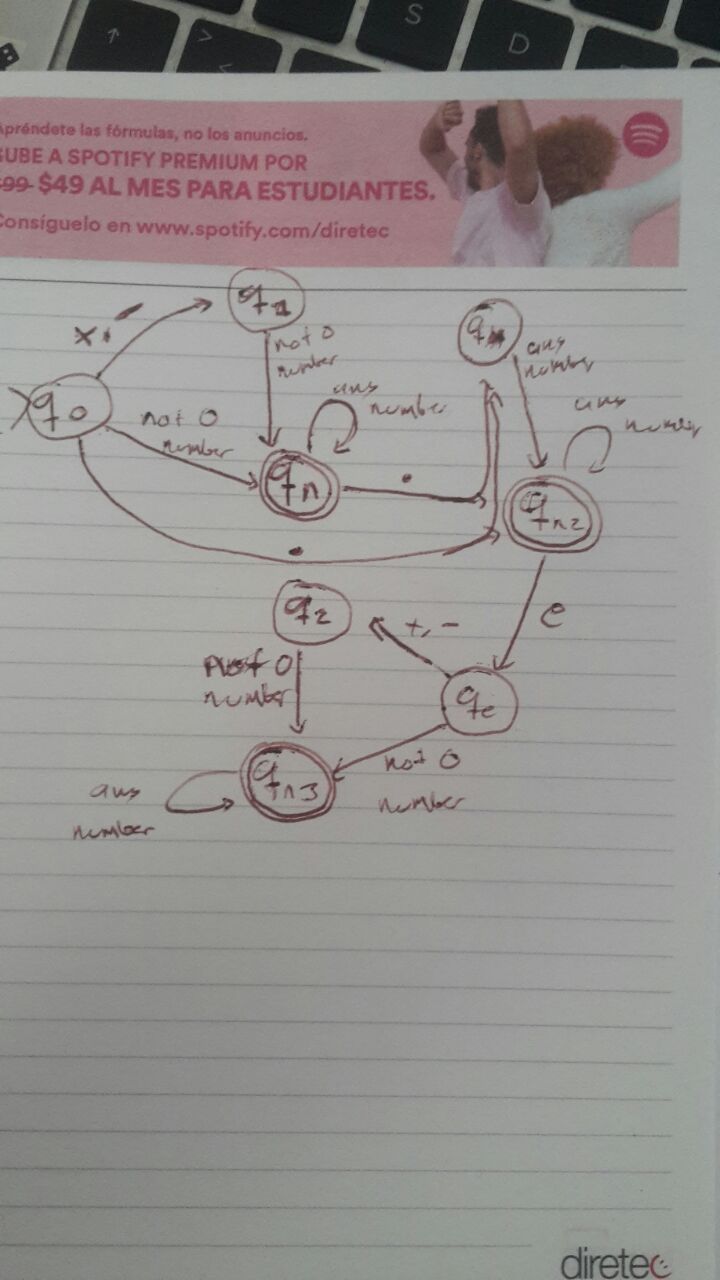 S
D
Apréndete las fórmulas, no los anuncios.
SUBE A SPOTIFY PREMIUM POR
$99 $49 AL MES PARA ESTUDIANTES.
Consíguelo en www.spotify.com/diretec
q1
not 0
number
q0
not 0
number
number
qn
.
number
number
qn2
.
e
q2
+, -
not 0
number
qe
not 0
number
qn3
number
diretec